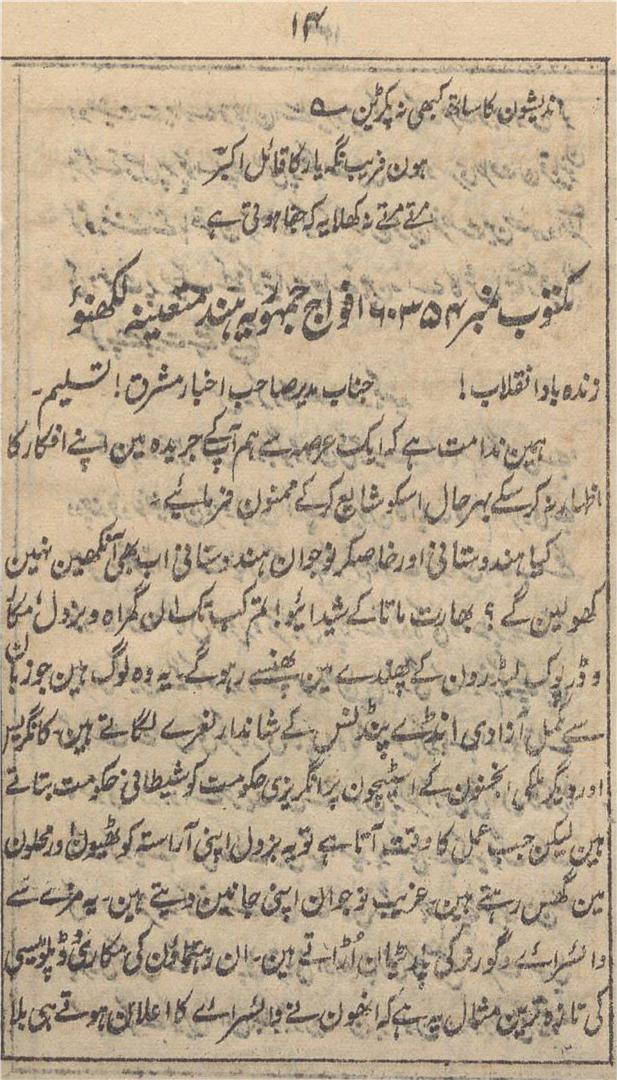 ۱۴
اندیشون کا ساتھ کبھی نہ پکڑین ؎
ہون فریب نگہ یار کا قائل اکبرؔ
مٹتے مٹتے نہ کھلا یہ کہ جفا ہوتی ہے
مکتوب نمبر ۶۰۳۵۴ افواج جمہوریہ ہند متعینہ لکھنؤ
زندہ باد انقلاب! جناب مدیر صاحب اخبار مشرق! تسلیم۔
ہمین ندامت ہے کہ ایک عرصہ سے ہم آپ کے جریدہ مین اپنے افکار کا
اظہار نہ کر سکے بہرحال اسکو شایع کر کے ممنون فرمائیے۔
کیا ہندوستانی اور خاصکر نوجوان ہندوستانی اب بھی آنکھین نہین
کھولین گے؟ بھارت ماتا کے شیدائیو! تم کب تک ان گمراہ و بزدل، مکار
و ڈرپوک لیڈرون کے پھندے مین پھنسے رہو گے۔ یہ وہ لوگ ہین جو زبان
سے مکمل آزادی انڈے پنڈنس کے شاندار نعرے لگاتے ہین۔ کانگریس
اور دیگر ملکی انجمنون کے اسٹیجون پر انگریزی حکومت کو شیطانی حکومت بتاتے
ہین لیکن جب عمل کا وقت آتا ہے تو یہ بزدل اپنی آراستہ کوٹھیون اور محلون
مین گھس رہتے ہین۔ غریب نوجوان اپنی جانین دیتے ہین۔ یہ مزے سے
وائسرائے و گورنر کی پارٹیان اُڑاتے ہین۔ ان رہنماؤن کی مکاری و ڈپلومیسی
کی تازہ ترین مثال یہ ہے کہ انھون نے وائسرائے کا اعلان ہوتے ہی بلا